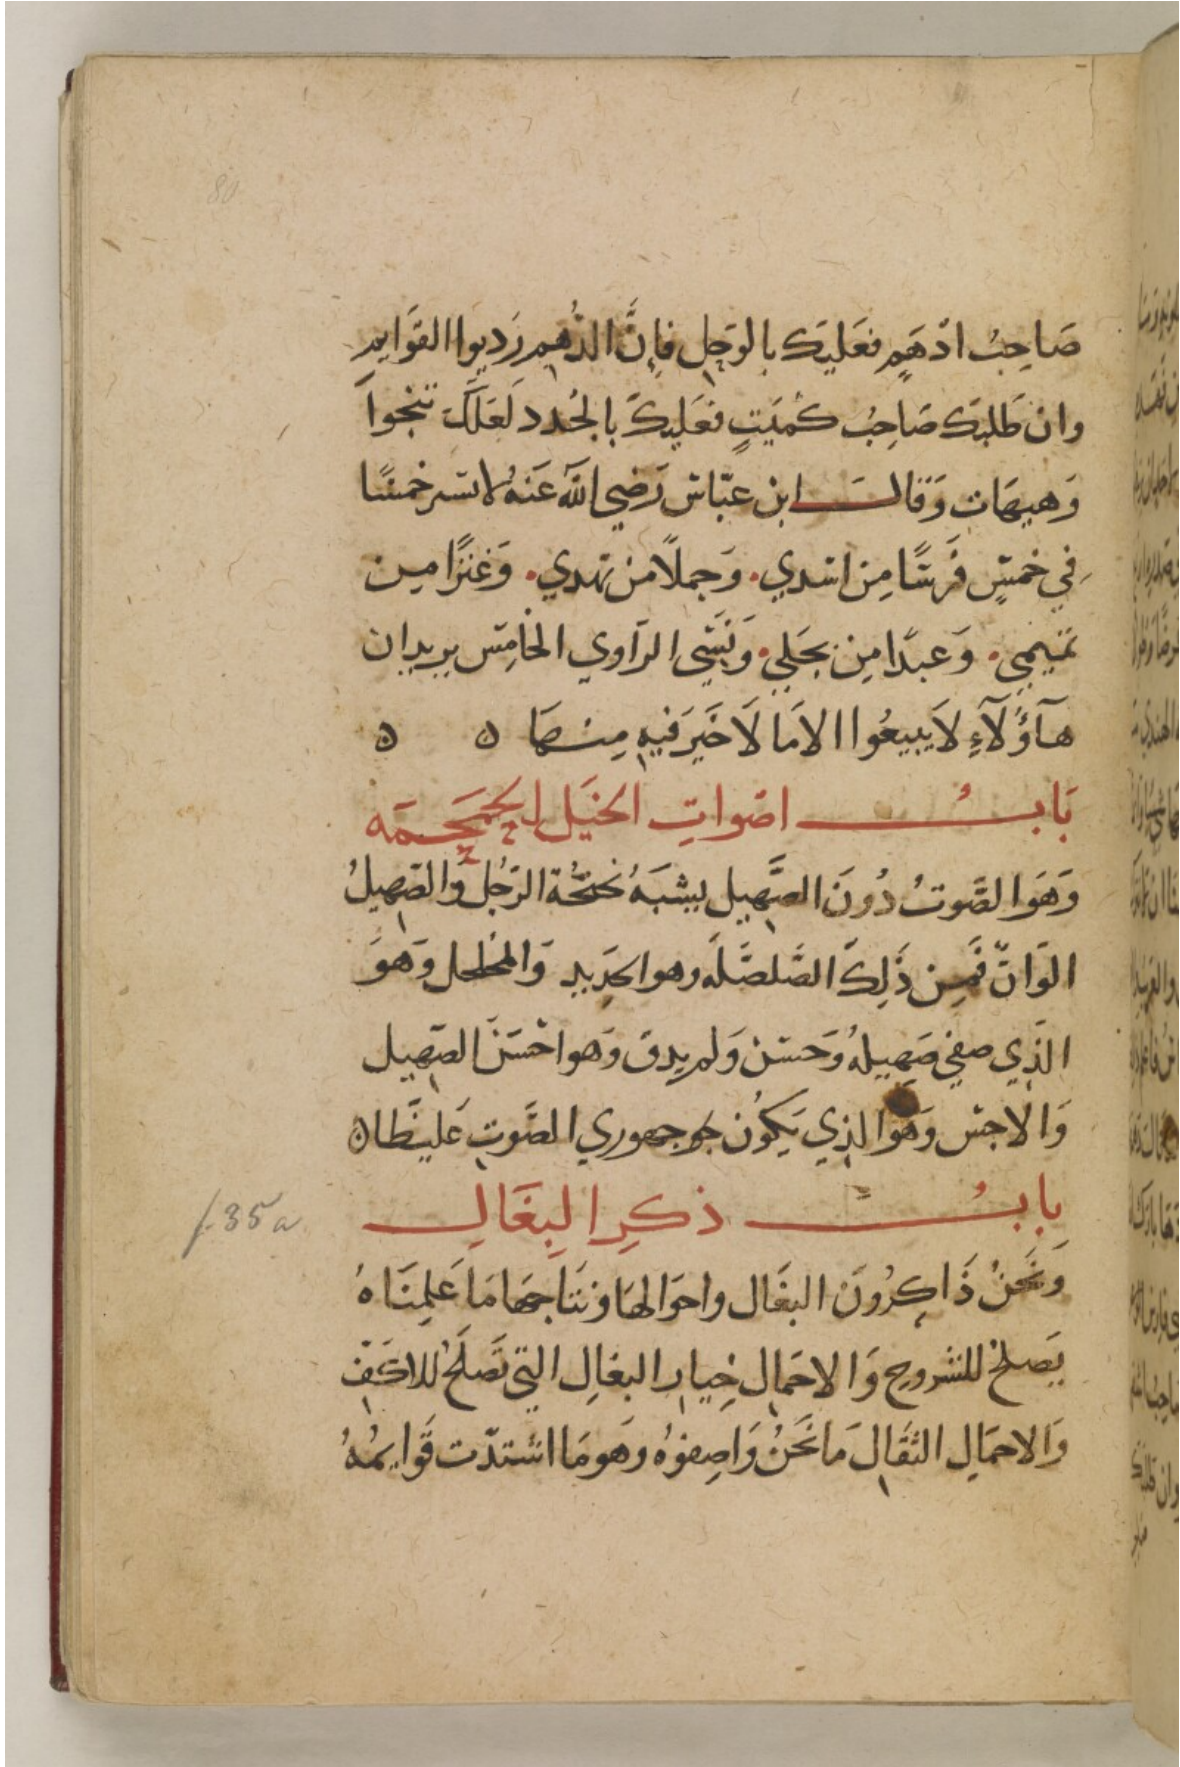 80
صَاحِبُ ادْهَمٍ فعَليَك بالوَحِل فاِنَّ الدُّهِم رَديوا القوَايم
وان طَلبَك صَاحِبُ كُميَتٍ فعَليكَ بالجُدد لَعَلَّكَ تنجوا
وَهيهَات وَقالَ ابن عبّاس رَضي الله عَنهُ لا تشتر خمسًا
في خمسٍ فَرسًا مِن اسَدي. وَجملاً من نهدي. وَعَنزًا مِن
تميمي. وَعَبدًا مِن بجَلي. وَنَسَّي الرّاوي الخامِس يريدان
هآؤُلآءِ لاَ يبيعُوا الا مَا لاَ خَيَر فيهِ مِنهمَا ه ه
بَابُ اصَواتِ الخيَل الحمَحَمَه
وَهَوا لصَّوتُ دُونَ الصَّهِيل يشبَهُ نحنَحُة الرّجُل وَّالصَهِيلُ
الوَانّ فَمِن ذَلِكَ الصَّلصَلَه وهو الحَدِيد وَالمحُلجل وَهوَ
الذِي صفي صَهِيلهُ وَحَسَن وَلم يدِق وَهو احْسَنَ الصّهِيل
وَالاجشّ وَهوَا لذِي يَكوُن جهوري الصَّوتِ غَليظًا ه
بابُ ذكرِ البِغَالِ
وَنَحَنُ ذَاكِرُونَ البغَال واحوَالهَا وَنتَاجهَا مَا عَلِمنَاهُ
يَصلحُ للسُّروج وَالاحمَالِ خِيار البغاِل التي تَصلَحُ للاكفّ
وَالاحمَالِ الثقَال مَا نَحَنُ وَاصِفوُه وهَو مَا اشتدّت قَوَايمُهُ
f. 35a